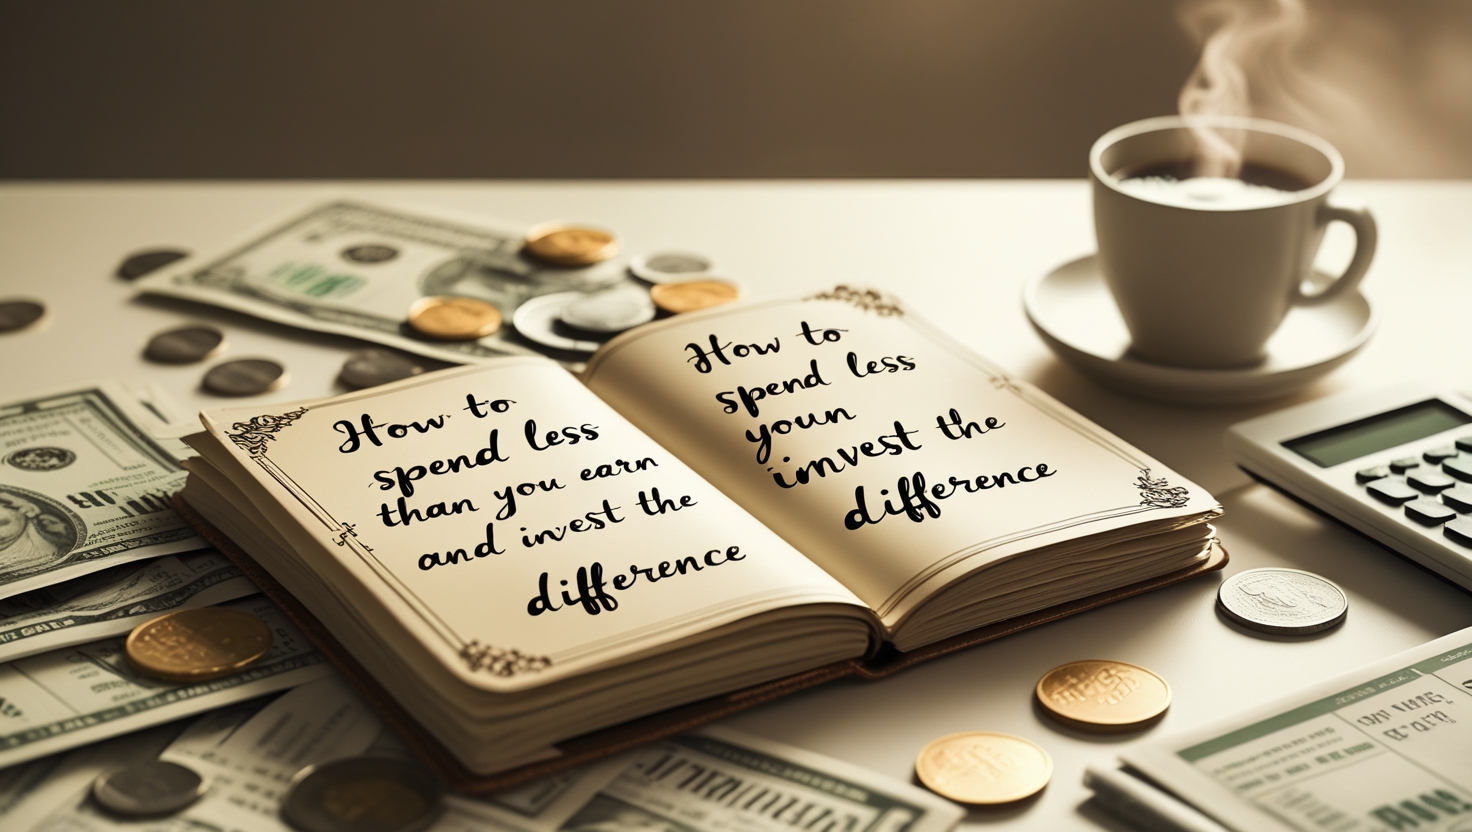 How to
spend less
than you earn
and invest the
difference
How to
spend less
youn
invest the
difference